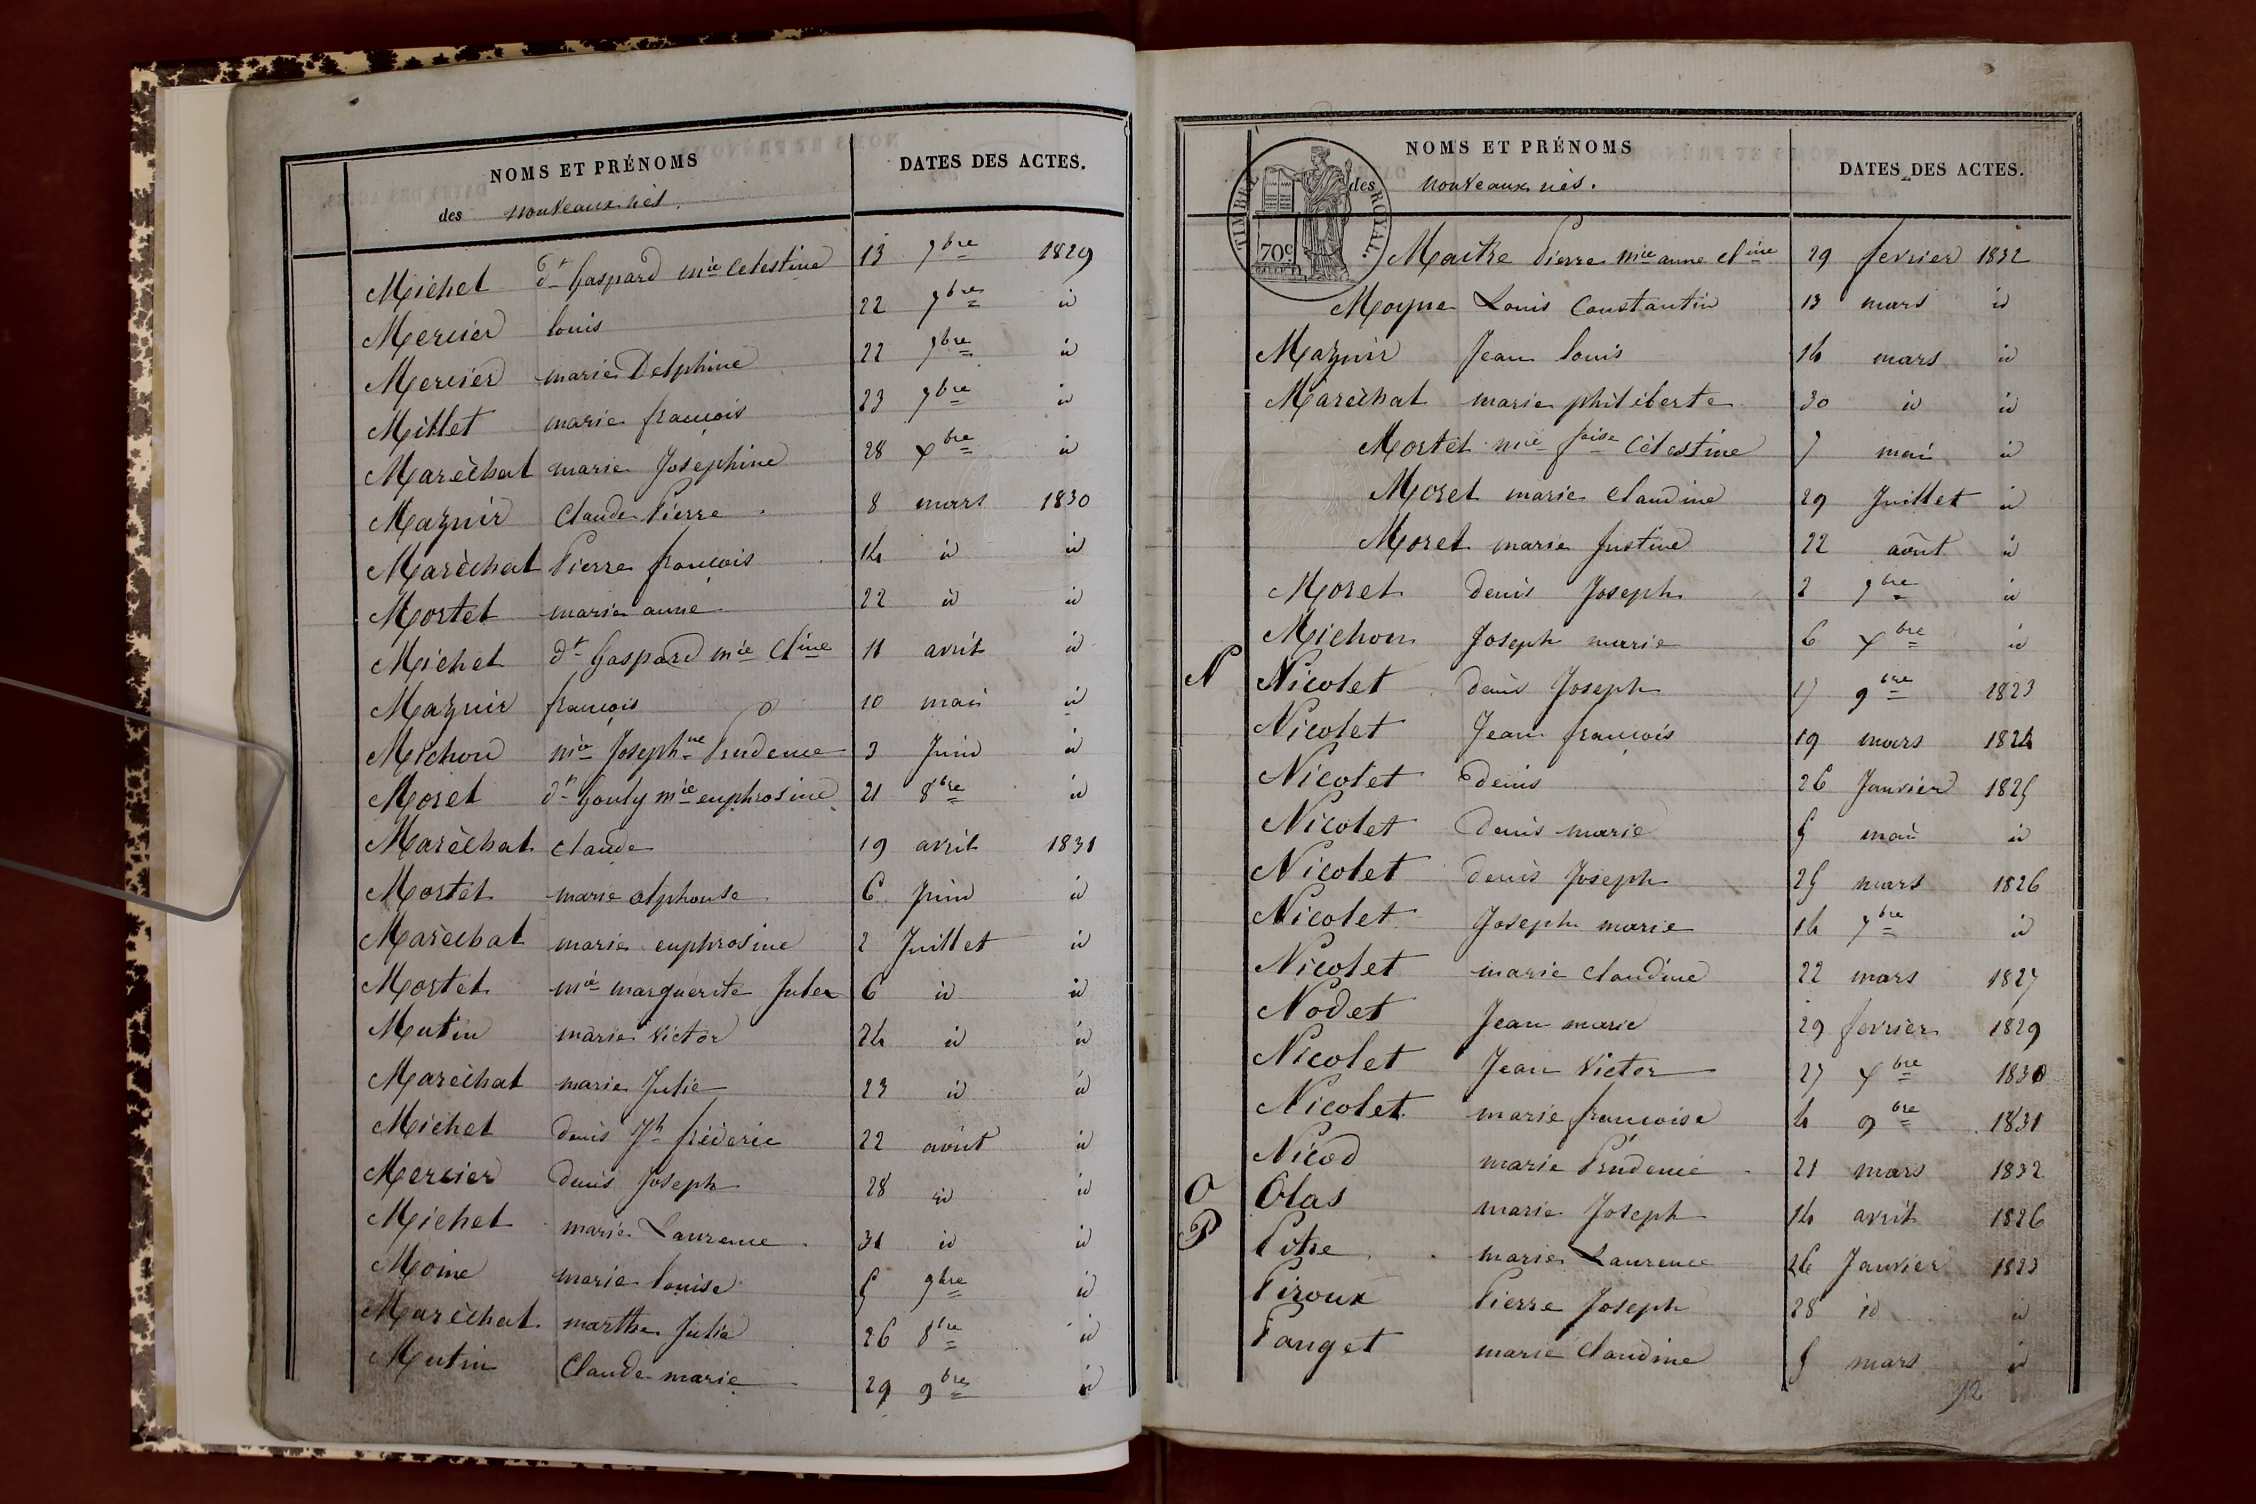 NOMS ET PRÉNOMS DATES DES ACTES.
des nouveaux nés.
Michel dt Gaspard mie Celestine 13 7bre 1829
Mercier louis 22 7bre id
Mercier marie Delphine 22 7bre id
Millet marie françois 23 7bre id
Marèchal marie Josephine 28 xbre id
Mazuir Claude Pierre 8 mars 1830
Marèchal Pierre françois 14 id id
Mortel marie anne 22 id id
Michel dt Gaspard mie Cline 11 avril id
Mazuir françois 10 mai id
Michon mie Josephne Prudence 3 Juin id
Morel dt Gouly mie euphrosine 21 8bre id
Marèchal claude 19 avril 1831
Mortel marie alphonse 6 Juin id
Marèchal marie euphrosine 2 Juillet id
Mortel mie marguerite Jules 6 id id
Mutin marie victor 24 id id
Marèchal marie Julie 23 id id
Michel denis Jh fréderic 22 août id
Mercier denis Joseph 28 id id
Michel marie Laurence 31 id id
Moine marie louise 5 7bre id
Marèchal marthe Julie 26 8bre id
Mutin Claude marie 29 9bre id
TIMBRE ROYAL.
70c
NOMS ET PRÉNOMS DATES DES ACTES.
des nouveaux nés.
Maitre Pierre mie anne Cline 29 fevrier 1832
Moyne Louis Constantin 13 mars id
Mazuir Jean louis 14 mars id
Marèchal marie philiberte 30 id id
Mortel mie foise Célestine 7 mai id
Morel marie claudine 29 Juillet id
Morel marie Justine 22 août id
Morel denis Joseph 2 7bre id
Michon Joseph marie 6 xbre id
N Nicolet denis Joseph 17 9bre 1823
Nicolet Jean françois 19 mars 1824
Nicolet denis 26 Janvier 1825
Nicolet Denis marie 5 mai id
Nicolet denis Joseph 25 mars 1826
Nicolet Joseph marie 14 7bre id
Nicolet marie claudine 22 mars 1827
Nodet Jean marie 29 fevrier 1829
Nicolet Jean Victor 27 xbre 1830
Nicolet marie francoise 4 9bre 1831
Nicod marie Prudence 21 mars 1832
O Olas marie Joseph 14 avril 1826
P Pitre marie Laurence 26 Janvier 1823
Piroux Pierre Joseph 28 id id
Panget marie Claudine 5 mars id
12